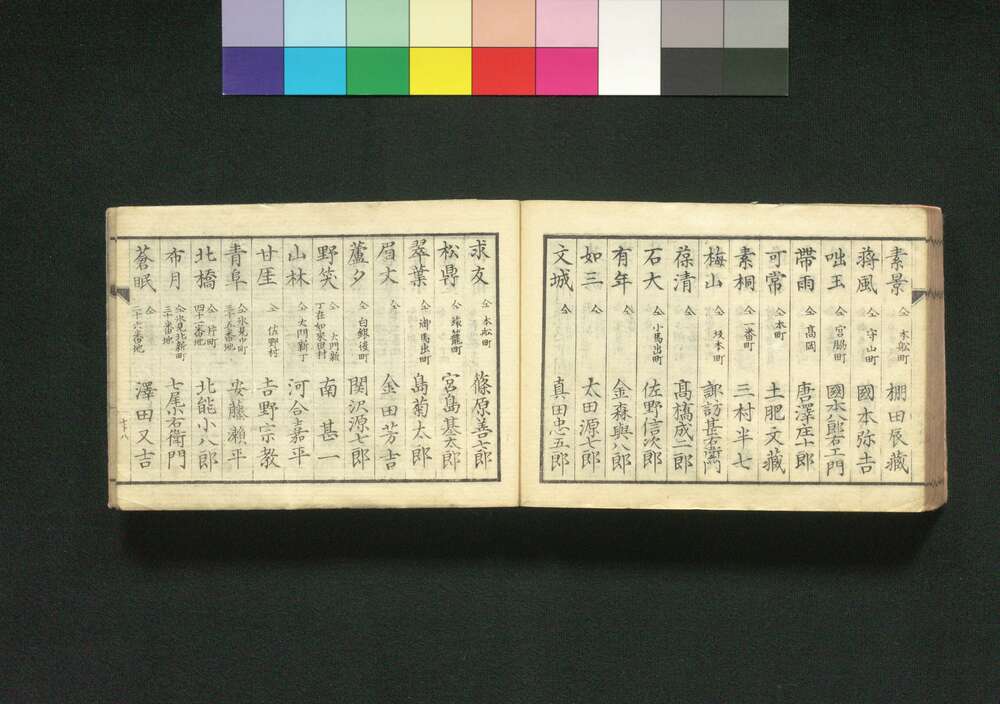 素景 仝 木舩町 棚田辰藏
蒋風 仝 守山町 國本弥吉
咄玉 仝 宮脇町 國本八郎右エ門
帶雨 仝 髙岡 唐澤庄十郎
可常 仝 本町 土肥文藏
素桐 仝 一番町 三村半七
梅山 仝 坂本町 諏訪甚右衛門
葆清 仝 髙橋成二郎
石大 仝 小馬出町 佐野信次郎
有年 仝 金森與八郎
如三 仝 太田源七郎
文城 仝 真田忠五郎
求友 仝 木舩町 篠原善七郎
松鼎 仝 宮島基太郎
翠葉 仝 御馬出町 島菊太郎
眉丈 仝 金田芳吉
蘆夕 仝 白銀後町 関沢源七郎
野笑 仝 大門新丁在如来田村 南甚一
山林 仝 大門新丁 河合嘉平
甘里 仝 佐野村 吉野宗教
青阜 仝 氷見中町三十五番地 安藤瀬平
北橋 仝 片町四十二番地 北能小八郎
布月 仝 氷見北新町三十番地 七尾小右衛門
蒼眠 仝 二十六番地 澤田又吉
廿八